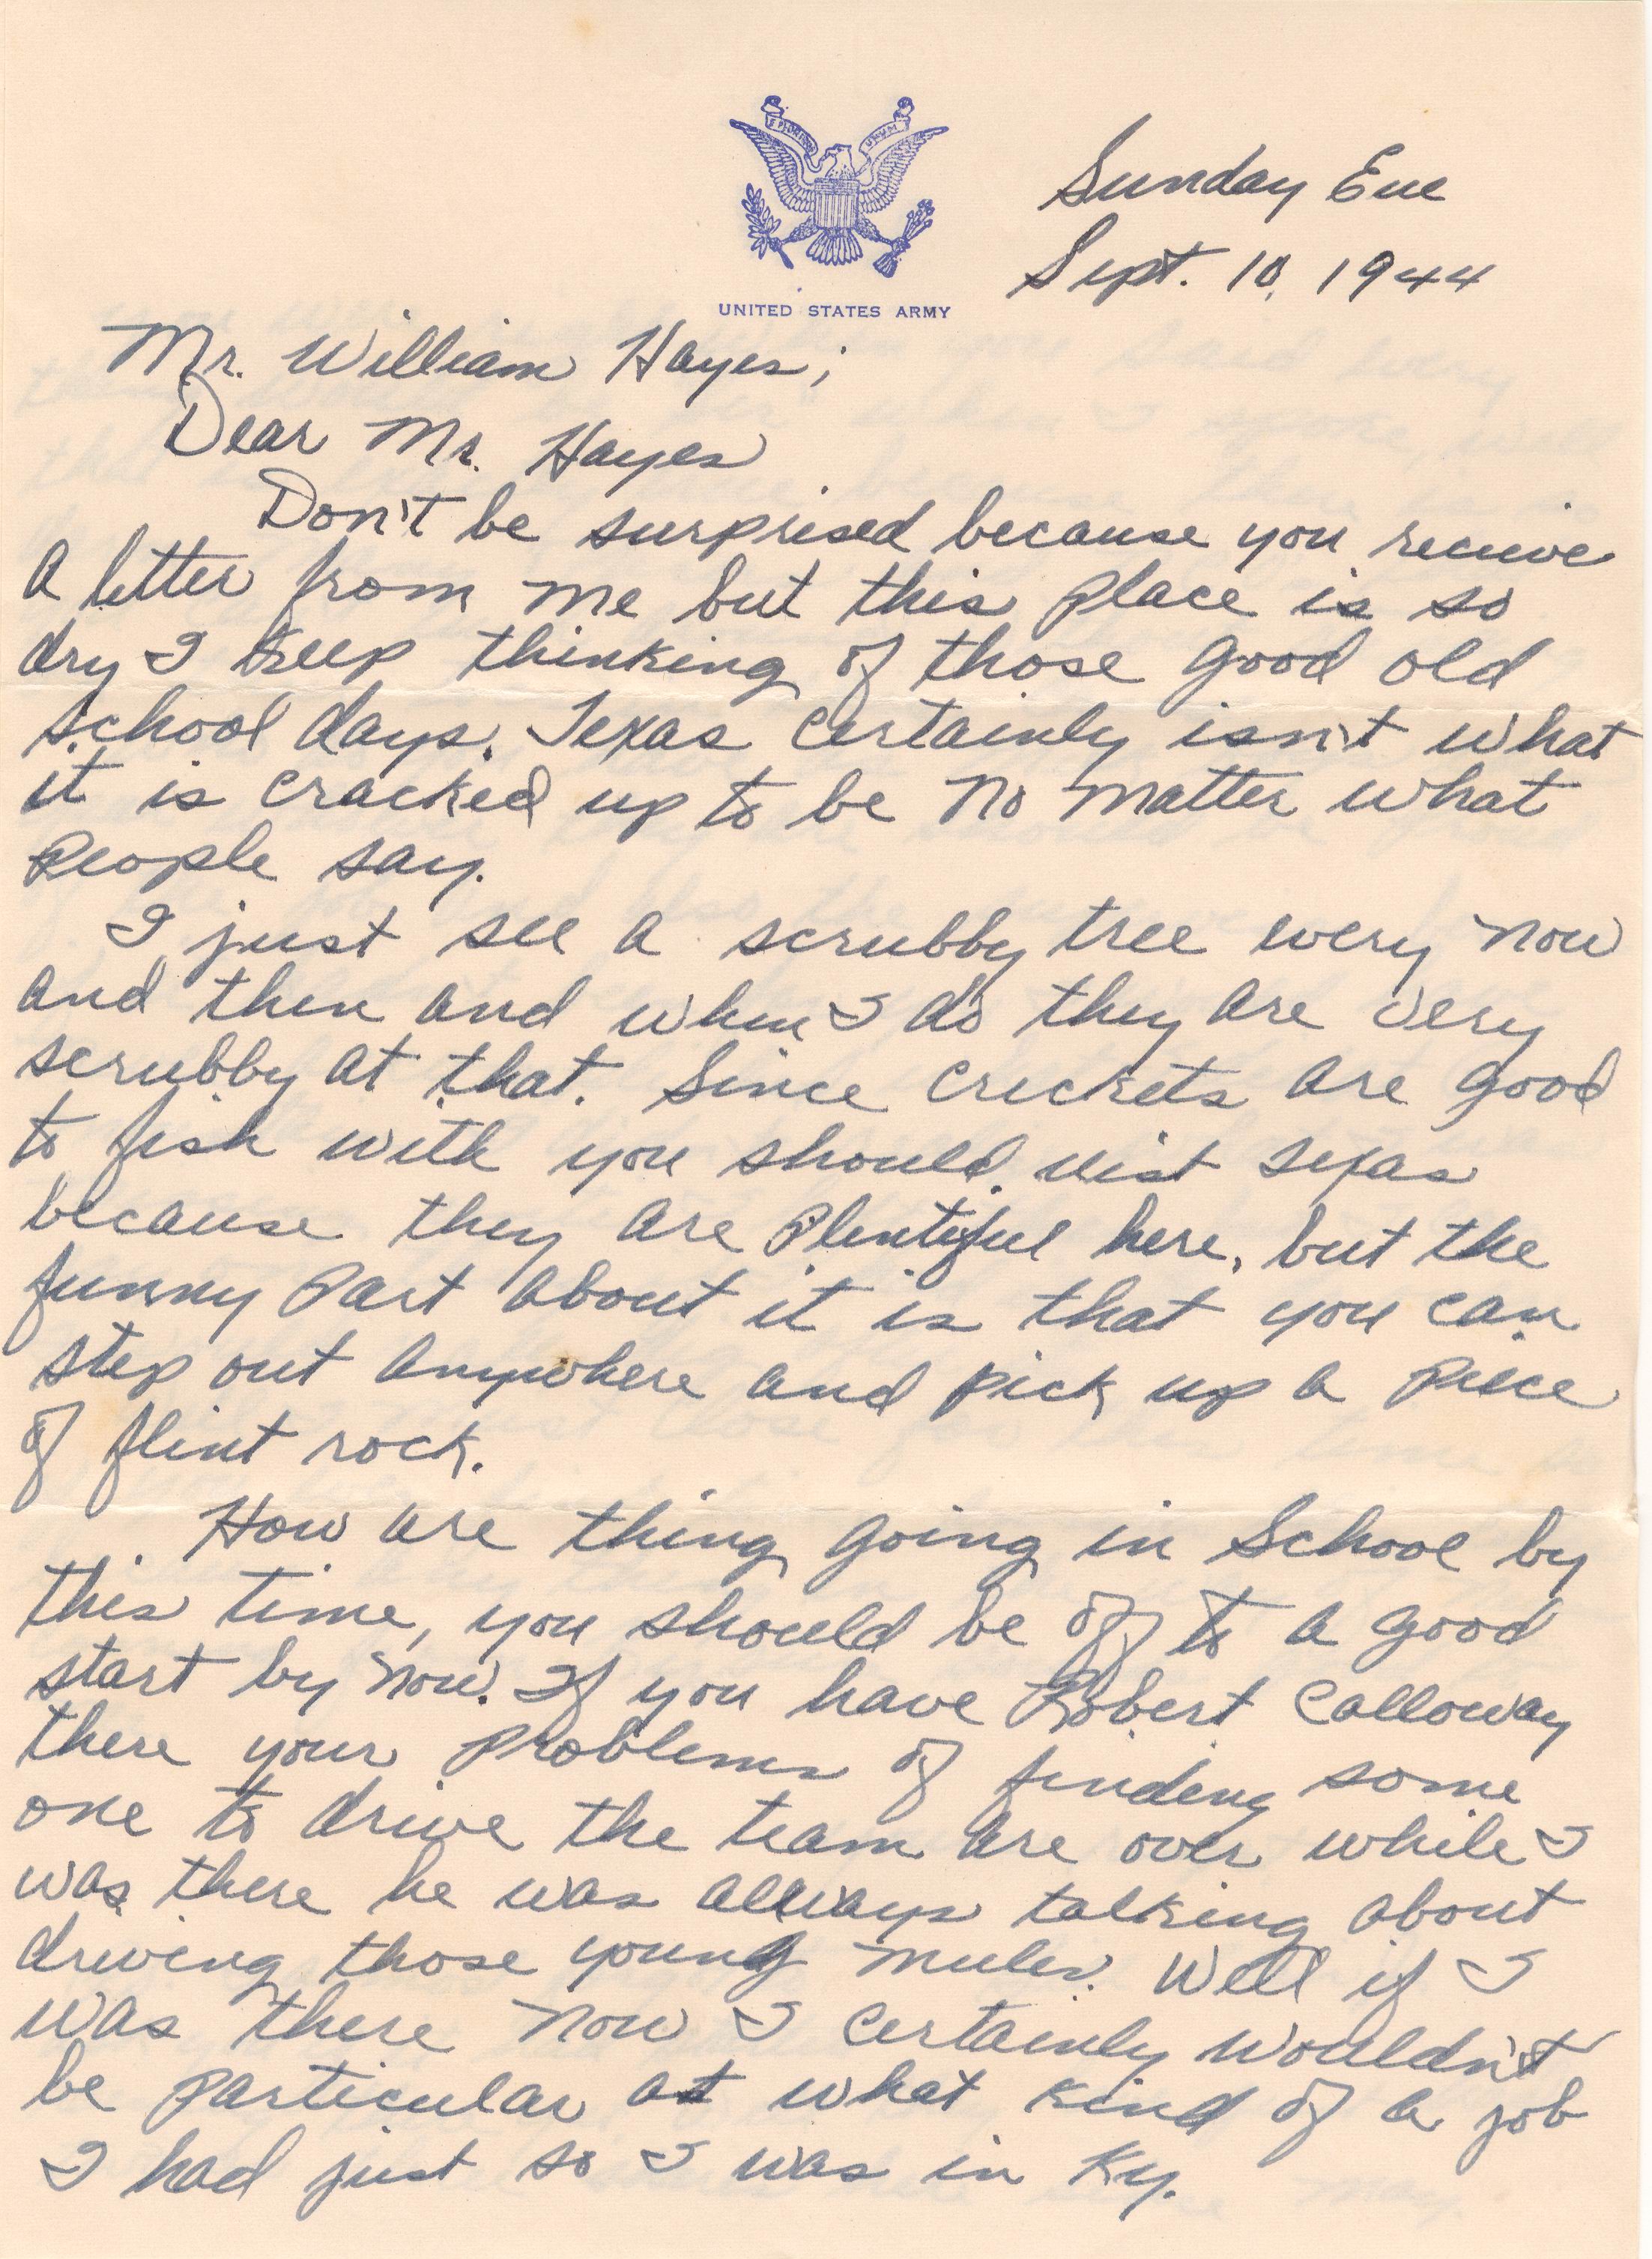 E PLURIBUS UNUM
Sunday Eve
Sept. 10, 1944
UNITED STATES ARMY
Mr. William Hayes;
Dear Mr. Hayes
Don't be surprised because you recieve
a letter from me but this place is so
dry I keep thinking of those good old
school days. Texas certainly isn't what
it is cracked up to be no matter what
people say.
I just see a scrubby tree every now
and then and when I do they are very
scrubby at that. Since crickets are good
to fish with you should vist Texas
because they are plentiful here, but the
funny part about it is that you can
step out anywhere and pick up a piece
of flint rock.
How are thing going in School by
this time, you should be off to a good
start by now. If you have Robert Calloway
there your problems of finding some
one to drive the team are over while I
was there he was always talking about
driving those young mules. Well if I
was there now I certainly wouldn't
be particular at what kind of a job
I had just so I was in Ky.